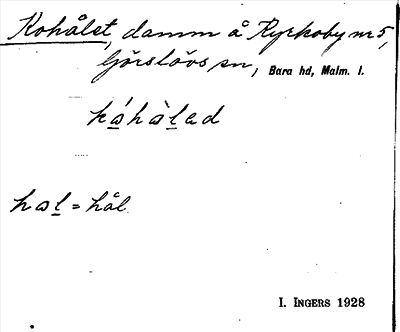 Kohålet, damm å Kyrkoby nr 5,
Görslövs sn, Bara hd, Malm. l.
káhàlad
hal = hål
I. INGERS 1928